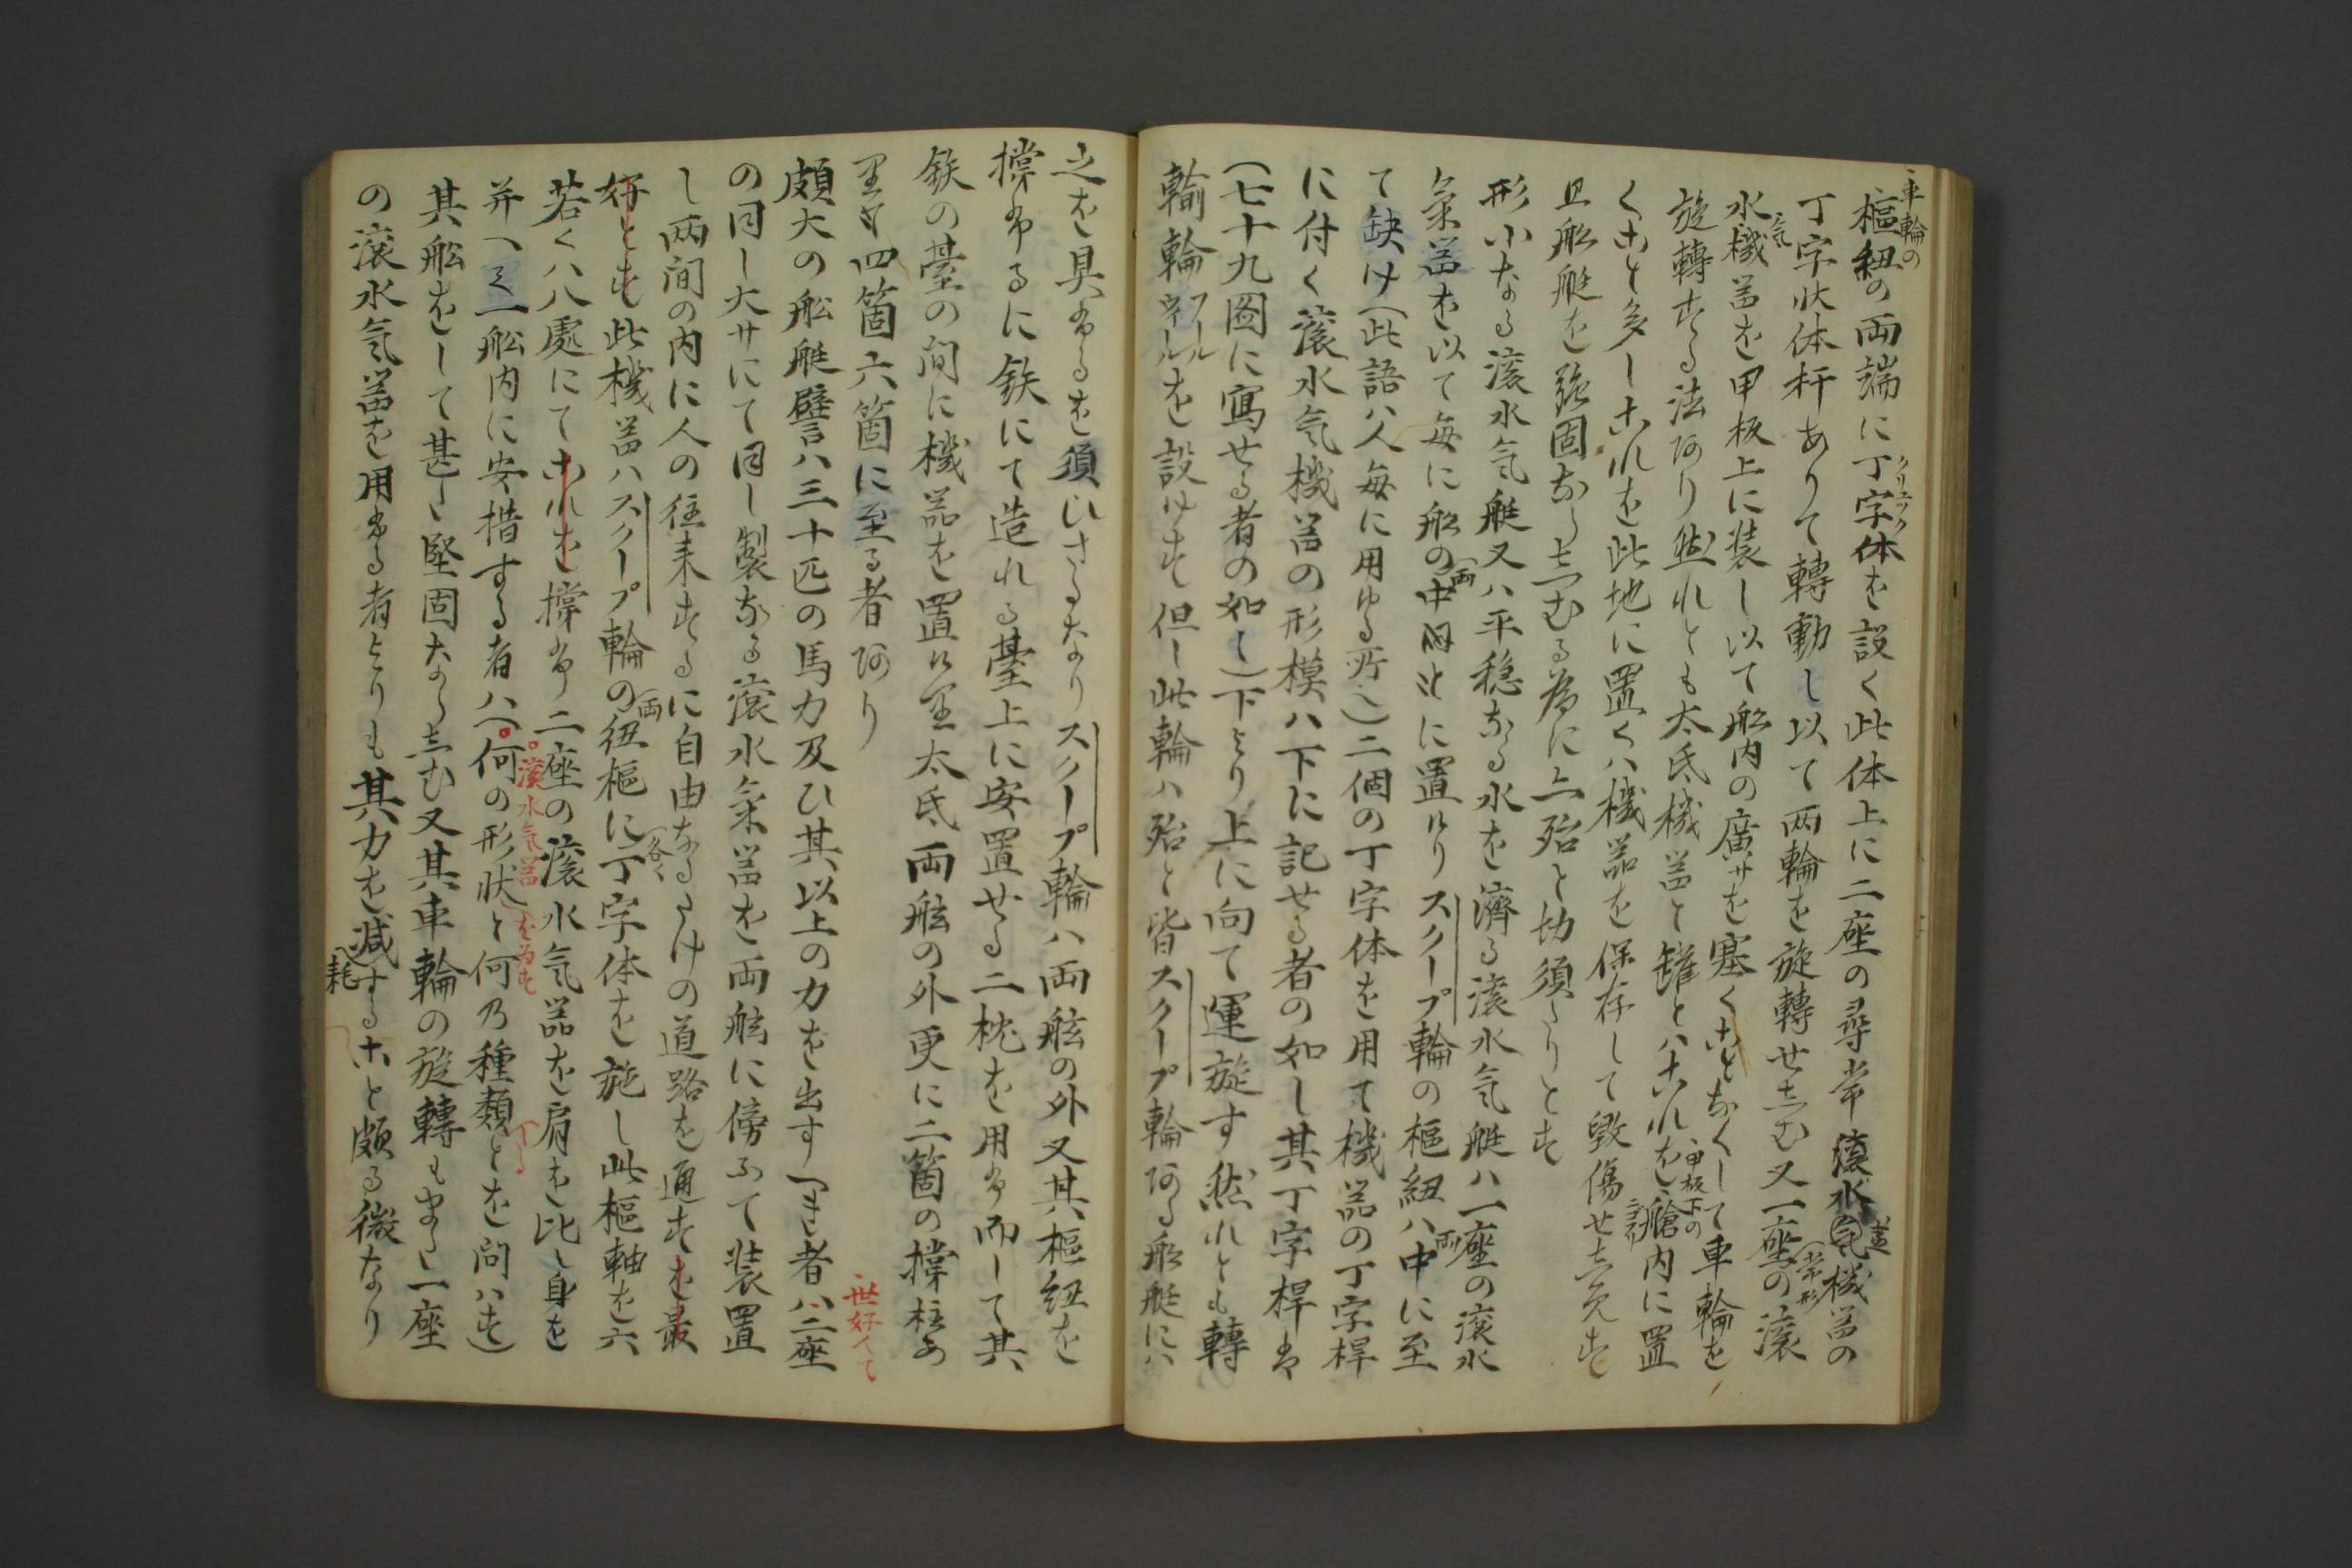 車輪の
樞紐の両端に丁字体を設く此体上に二座の尋常滾水気機器の
クリユツク
丁字状体杆ありて轉動し以て两輪を旋轉せしむ又一座の滾
常形
水気機器を甲板上に装し以て船内の廣サを塞くことなくして車輪を
旋轉する法あり然れとも太氐機器と罐とハこれを甲板下の艙内に置
くこと多しこれを此地に置くハ機器を保存して毀傷せしめす
且船艇を强固ならしむる為に亦殆と切須なりとす
形小なる滾水気艇又ハ平穏なる水を濟る滾水気艇ハ一座の滾水
気器を以て毎に船の中に置けりスクープ輪の樞紐ハ中に至
両
て缺け(此語ハ人毎に用ゆる所之)二個の丁字体を用て機器の丁字桿
に付く滾水気機器の形模ハ下に記せる者の如し其丁字桿は
(七十九圏に寫せる者の如し)下より上に向て運旋す然れとも轉
輸輪を設けす但し此輪ハ殆と皆スクープ輪ある船艇にハ
フルウヰルル
之を具するを須ひさるなりスクープ輪ハ両舷の外又其樞紐を
撐するに鉄にて造れる臺上に安置せる二枕を用す而して其
鉄の臺の间に機器を置けり太氐両舷の外更に二箇の撐柱あ
り四箇六箇に至る者あり
頗大の船艇譬ハ三十匹の馬力及ひ其以上の力を出すへき者ハ二座
世好んて
の同し大サにて同し製なる滾水気器を両舷に傍ふて装置
し两间の内に人の往来するに自由なるたけの道路を通すを最
好とす此機器ハスクープ輪の両紐樞に各丁字体を施し此樞軸を六
若くハ八處にてこれを撐す二座の滾水気器を肩を比し身を
并へて一船内に安措する者ハ(何の形状と何乃種類とを問ハす)
滾水気器を為す
其船をして甚た堅固ならしむ又其車輪の旋轉もまた一座
の滾水気器を用する者よりも其力を減耗すること頗る微なり